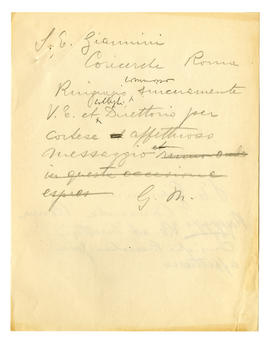 S. E. Giannini
Concerch Roma
commosso
Ringrazio sinceramente
colleghi
V. E. et Direttorio per
cortese ed affettuoso
messaggio et
in queste occasione
espres
G. M.